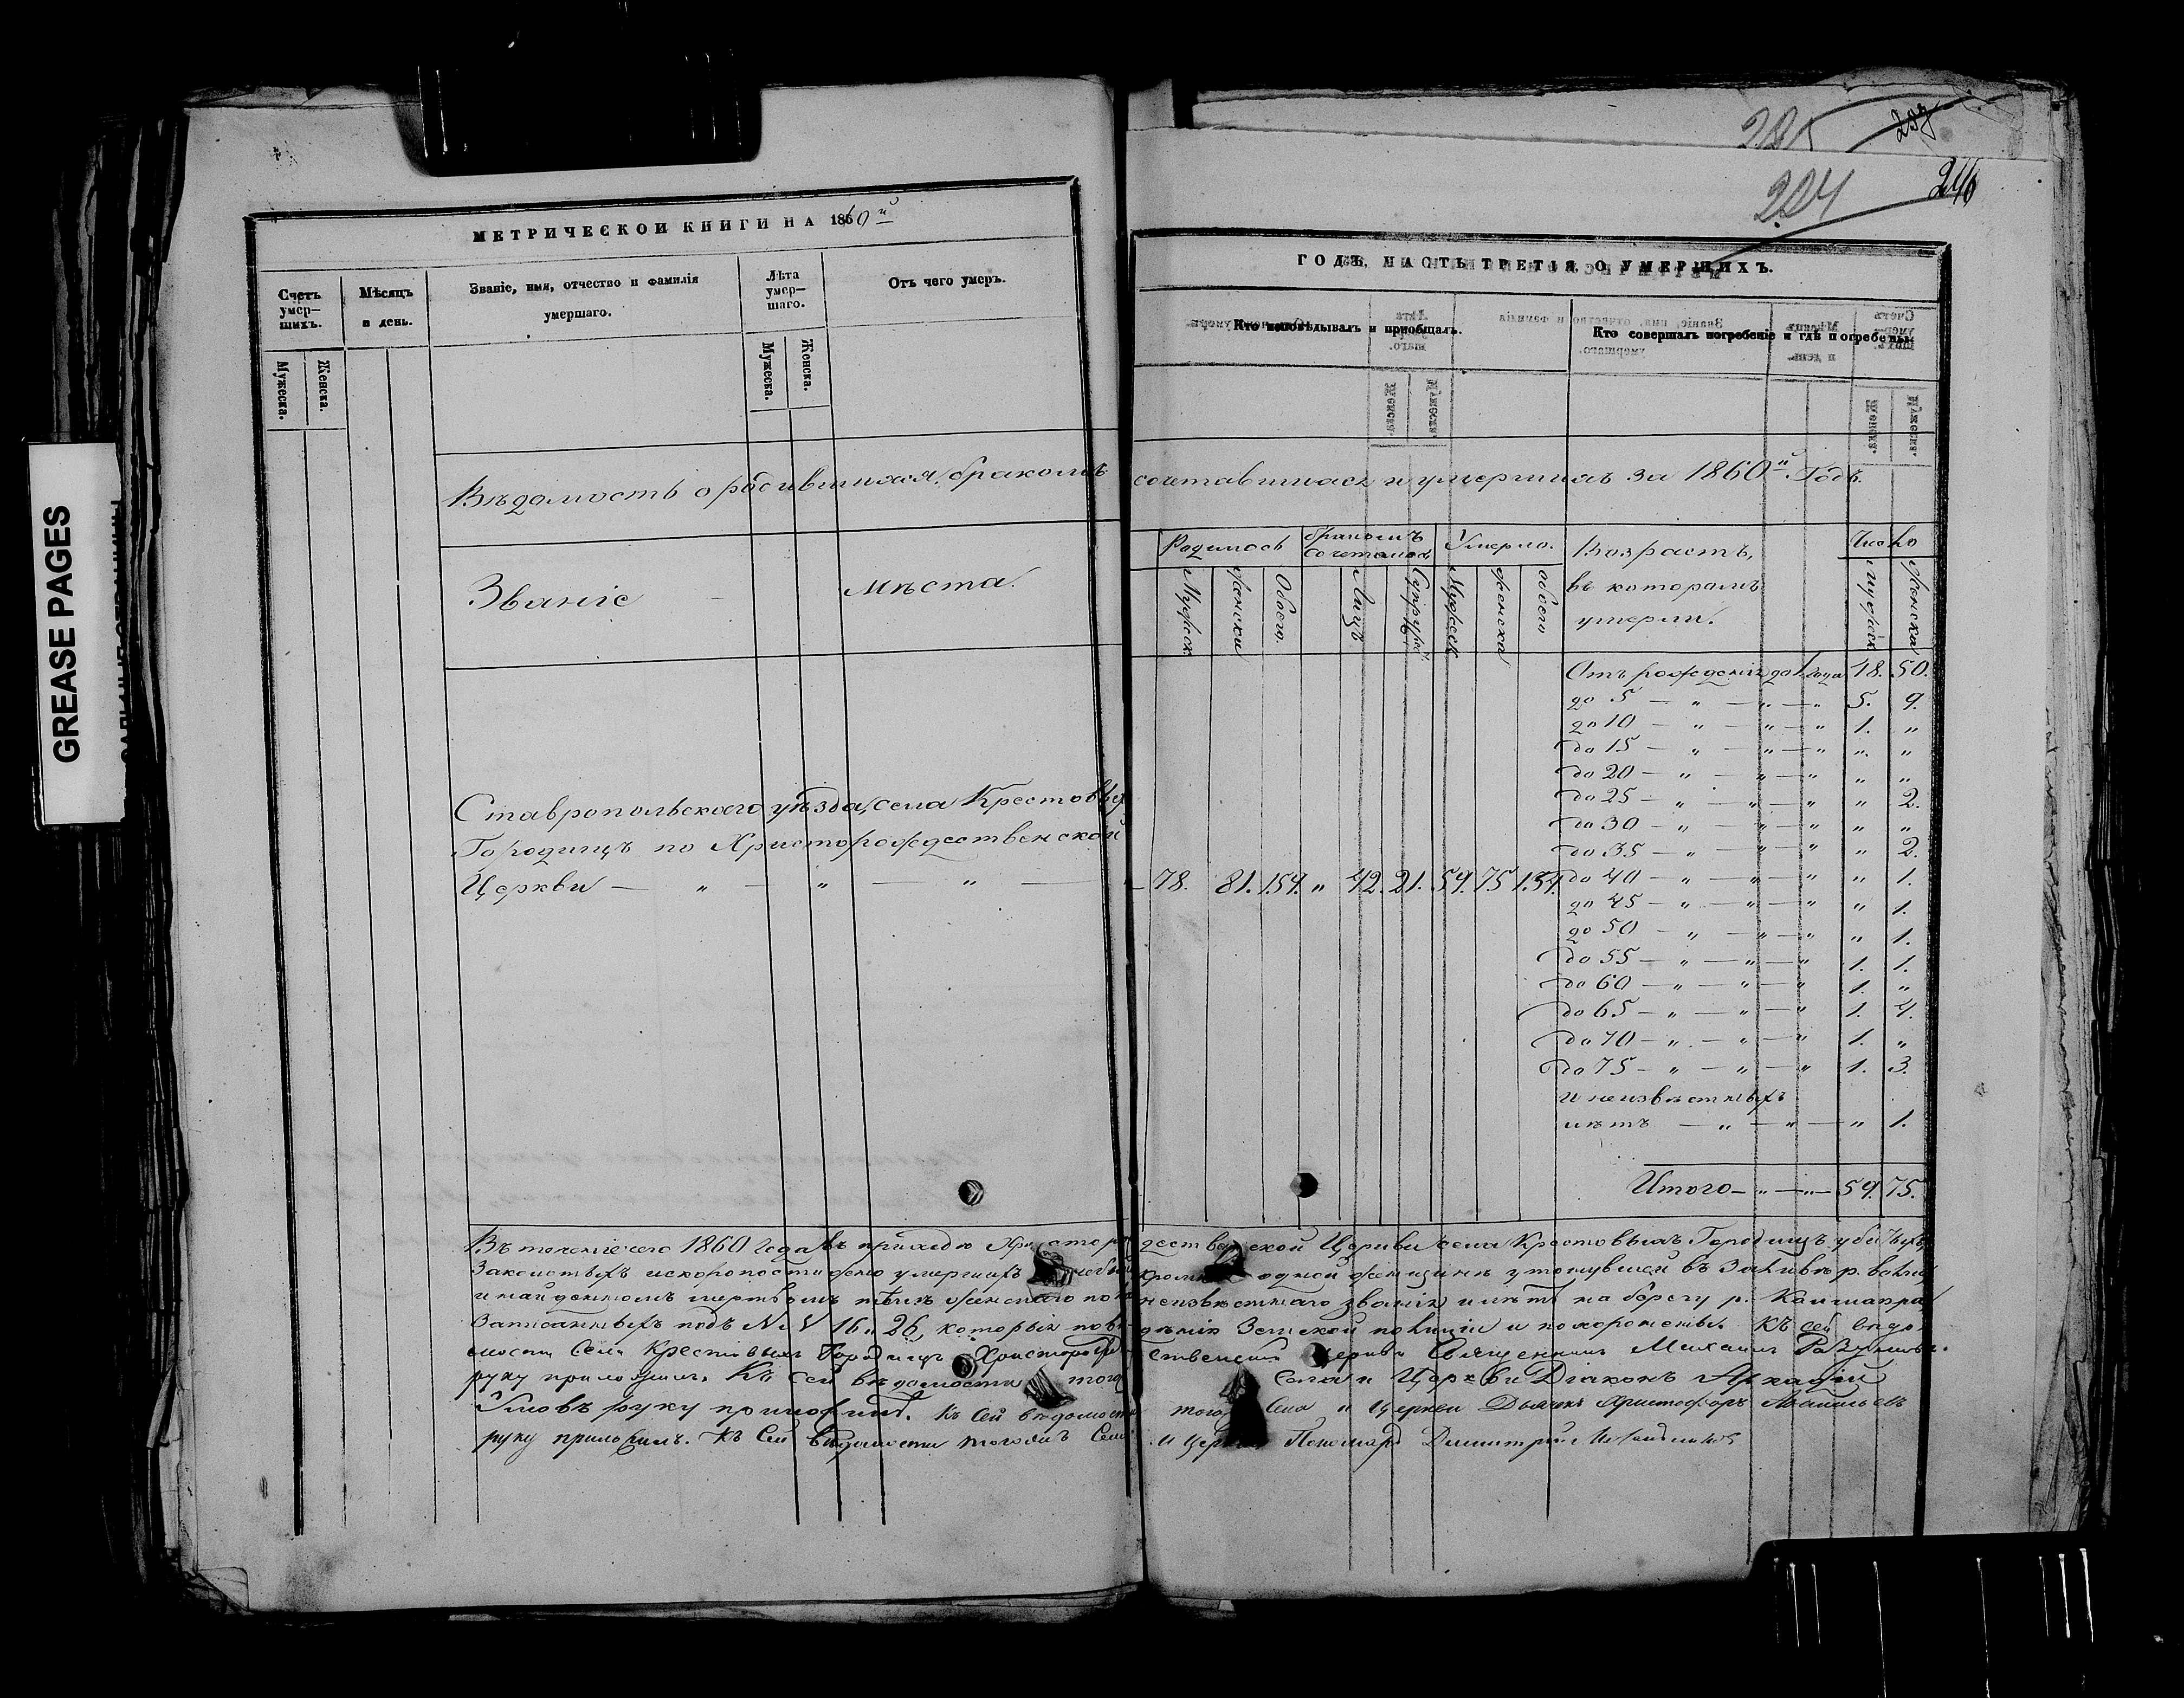 GREASE PAGES
285
224
246
МЕТРИЧЕСКОЙ КНИГИ НА 1860й
Счетъ умер—шихъ.
Мужеска.
Женска.
Мѣсяцъ и день.
Званіе, имя, отчество и фамилія умершаго.
Лѣта умер—шаго.
Мужеска.
Женска.
Отъ чего умеръ.
ГОДЪ, ЧАСТЬ ТРЕТІЯ, О УМЕРШИХЪ.
Кто исповѣдывалъ и приобщалъ.
Кто совершалъ погребеніе и гдѣ погребены.
Вѣдомость о родившихся, бракомъ сочетавшихся и умершихъ за 1860й Годъ.
Званіе мѣста.
Родилось
Мужск.
Женски
Обоего.
бракомъ сочеталось
Лицъ
Супруж.
Умерло.
Мужеск
женска
обоего
Возрастъ, въ которомъ умерли.
Число
мужеск
женска
Отъ рожденія до 1 года 48. 50.
до 5 — „ — „ — „ 5. 9.
до 10 — „ — „ — „ 1. „
до 15 — „ — „ — „ „ „
до 20 — „ — „ — „ „ „
до 25 — „ — „ — „ „ 2.
до 30 — „ — „ — „ „ „
до 35 — „ — „ — „ „ 2.
Ставропольскаго уѣзда, села Крестовыхъ
Городищъ по Христорождественской
Церкви — „ — „ — „ — 78. 81. 159. „ 42. 21. 59. 75. 134.
до 40 — „ — „ — „ „ 1.
до 45 — „ — „ — „ „ 1.
до 50 — „ — „ — „ „ 1.
до 55 — „ — „ — „ 1. 1.
до 60 — „ — „ — „ 1. „
до 65 — „ — „ — „ 1. 4.
до 70 — „ — „ — „ 1. „
до 75 — „ — „ — „ 1. 3.
и неизвѣстныхъ
лѣтъ — „ — „ — „ 1.
Итого — „ — „ — 59. 75.
Въ теченіе сего 1860 Года въ приходѣ Христорождественской Церкви села Крестовыхъ Городищъ убитыхъ,
и скоропостижно умершихъ небыло кромѣ одной женщины утонувшей въ Заливѣ р. Волги
и найденномъ мертвомъ тѣлѣ женскаго пола неизвѣстнаго званія и лѣтъ на берегу р.
Записанныхъ подъ № 16 и 26, которыя по вѣдѣнію Земской полиціи и похоронены. Къ сей вѣдо-
мости Села Крестовыхъ Городищъ Христорождественской Церкви Священникъ Михаилъ Разумовъ
руку приложилъ. Къ сей вѣдомости того Села и Церкви Діаконъ Аркадій
Умовъ руку приложилъ. Къ сей вѣдомости того Села и Церкви Дьячекъ Христофоръ
руку приложилъ. Къ Сей вѣдомости тогожъ Села и Церкви Пономарь Димитрій